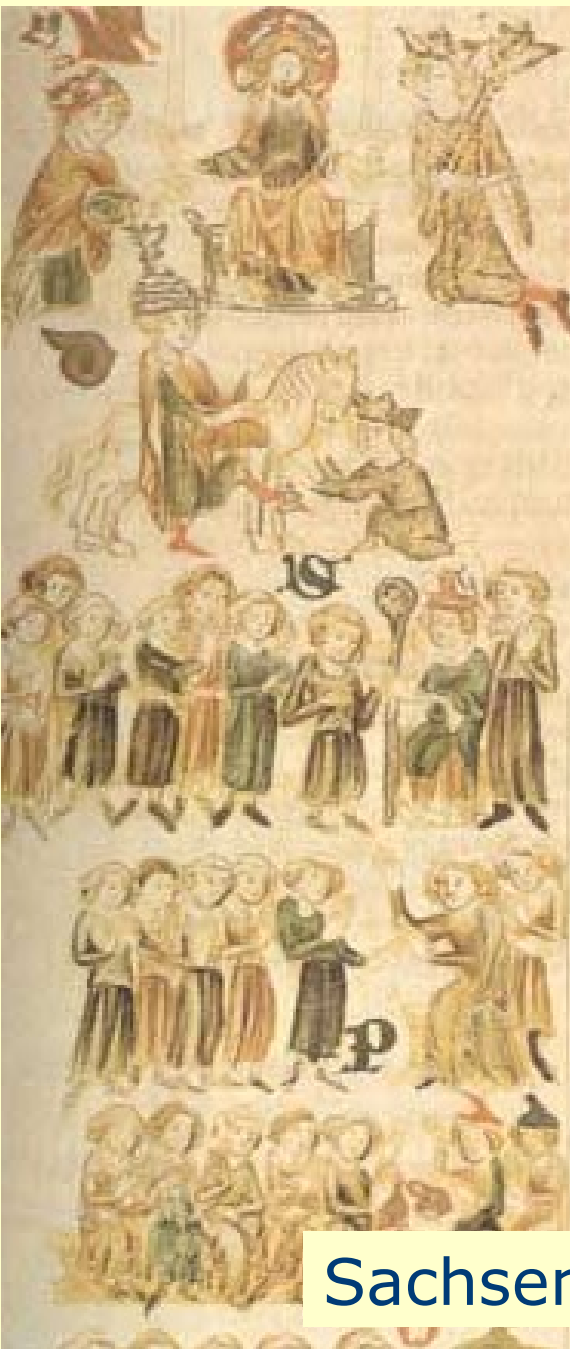 S
P
Sachsen